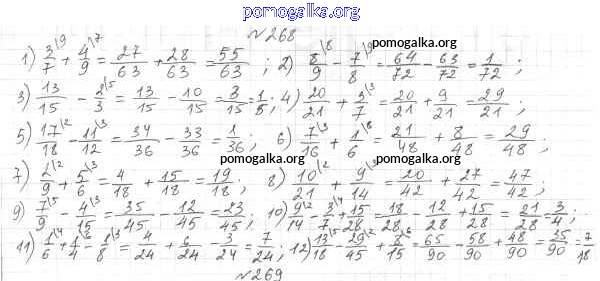 pomogalka.org
№268
1) 3/7 \9 + 4/9 \7 = 27/63 + 28/63 = 55/63 ; 2) 8/9 \8 - 7/8 \9 = 64/72 - 63/72 = 1/72 ;
pomogalka.org
3) 13/15 - 2/3 \5 = 13/15 - 10/15 = 3/15 = 1/5 ; 4) 20/21 + 3/7 \3 = 20/21 + 9/21 = 29/21 ;
5) 17/18 \2 - 11/12 \3 = 34/36 - 33/36 = 1/36 ; 6) 7/16 \3 + 1/6 \8 = 21/48 + 8/48 = 29/48 ;
pomogalka.org
7) 2/9 \2 + 5/6 \3 = 4/18 + 15/18 = 19/18 ; 8) 10/21 \2 + 9/14 \3 = 20/42 + 27/42 = 47/42 ;
pomogalka.org
9) 7/9 \5 - 4/15 \3 = 35/45 - 12/45 = 23/45 ; 10) 9/14 \2 - 3/7 \4 + 15/28 = 18/28 - 12/28 + 15/28 = 21/28 = 3/4 ;
11) 1/6 \4 + 1/4 \6 - 1/8 \3 = 4/24 + 6/24 - 3/24 = 7/24 ; 12) 13/18 \5 - 29/45 \2 + 8/15 \6 = 65/90 - 58/90 + 48/90 = 35/90 = 7/18
№269
pomogalka.org